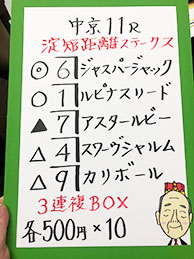 中京11R
淀短距離ステークス
◎ 6 ジャスパージャック
○ 1 ルピナスリード
▲ 7 アスタールビー
△ 4 スワーヴシャルム
△ 9 カリボール
3連複BOX
各500円×10